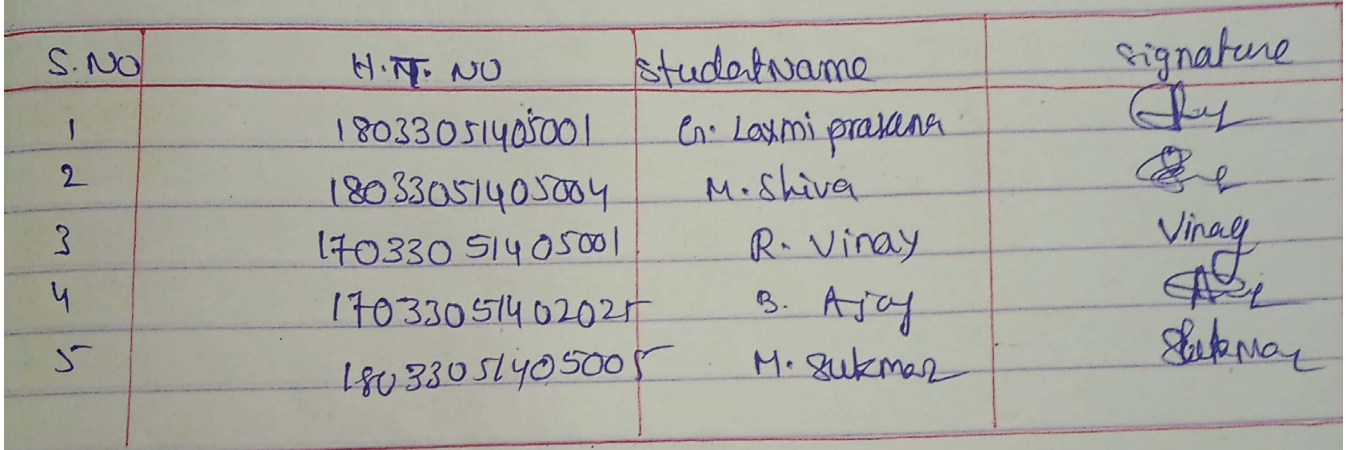 S.NO H.T. NO StudentName Signature
1 18033051405001 G. Laxmi prasana
2 18033051405004 M. Shiva
3 17033051405001 R. Vinay Vinay
4 17033051402025 B. Ajay
5 18033051405005 M. Sukmar